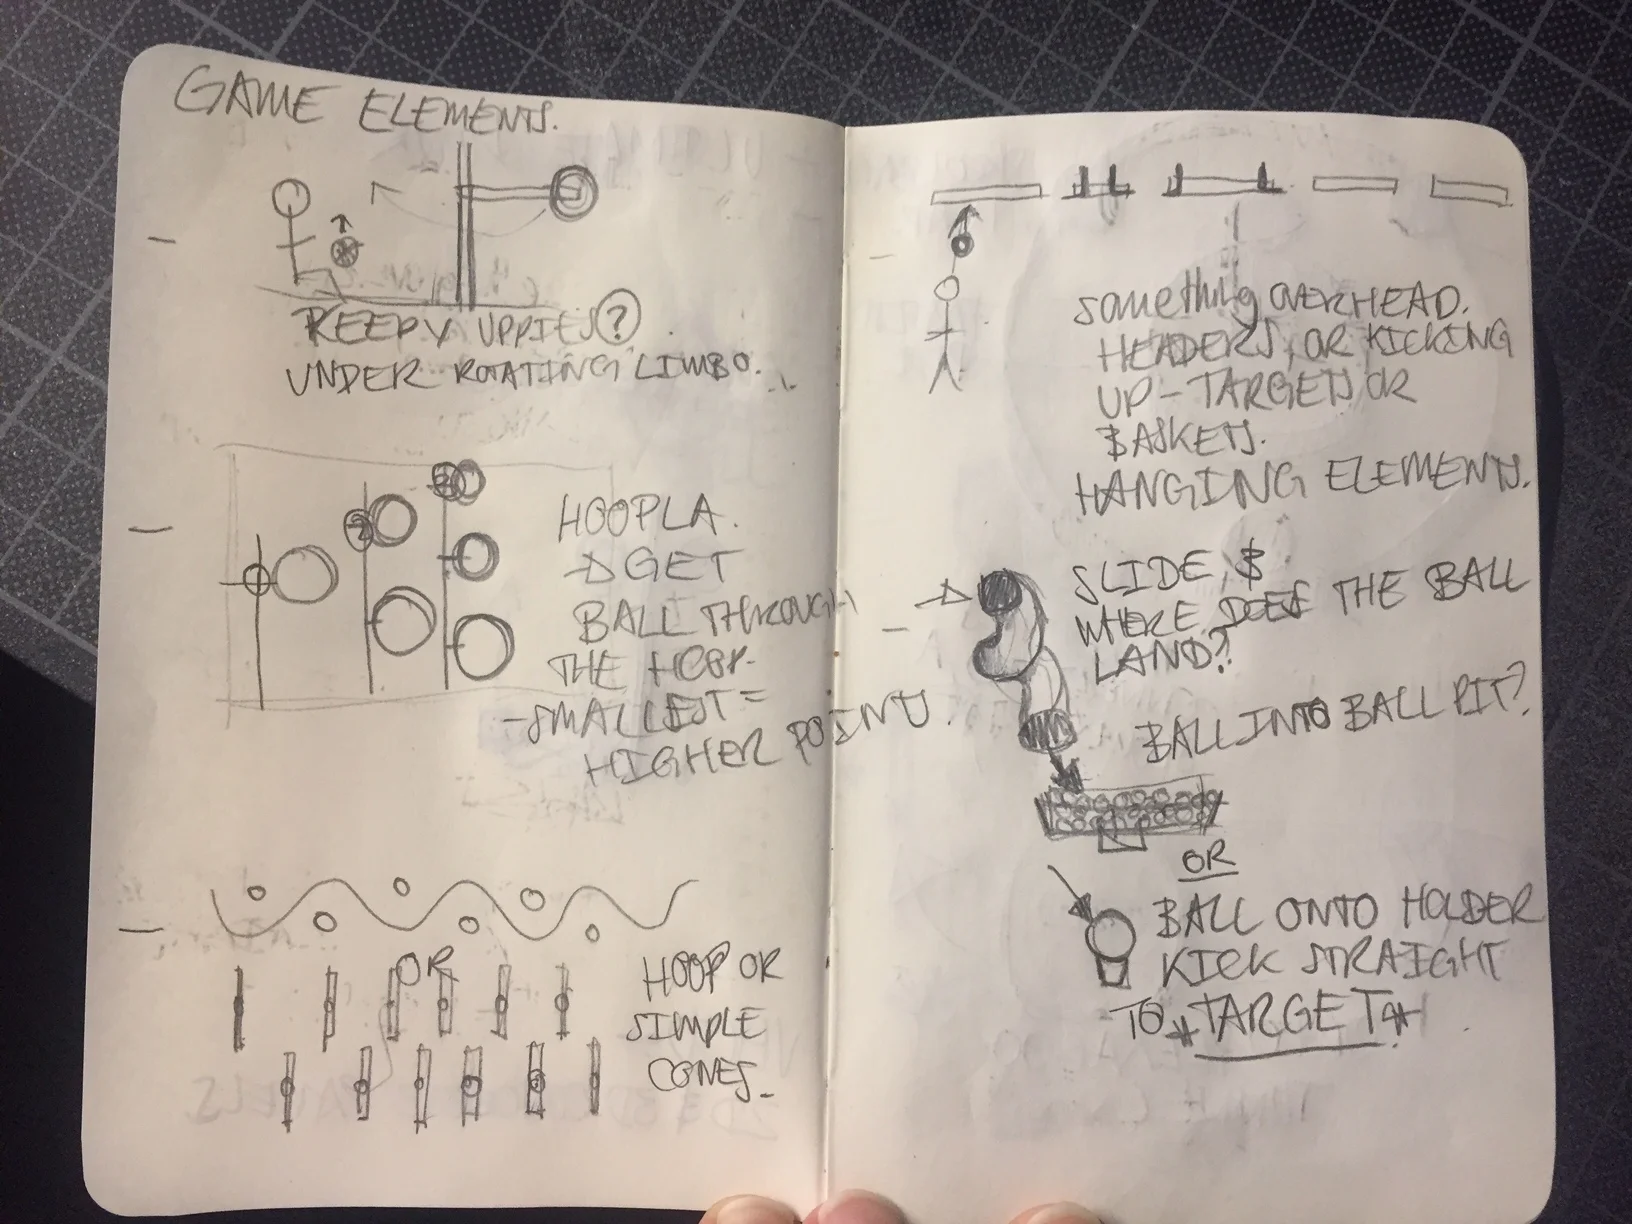 GAME ELEMENTS.
KEEPY UPPIES?
UNDER ROTATING LIMBO.
HOOPLA.
GET
BALL THROUGH
THE HOOP.
-SMALLEST =
HIGHER POINTS.
OR
HOOP OR
SIMPLE
CONES_
something OVERHEAD.
HEADERS, OR KICKING
UP - TARGETS OR
BASKETS.
HANGING ELEMENTS.
SLIDE,
WHERE DOES THE BALL
LAND?
BALL INTO BALL PIT?
OR
BALL ONTO HOLDER
KICK STRAIGHT
TO *TARGET*